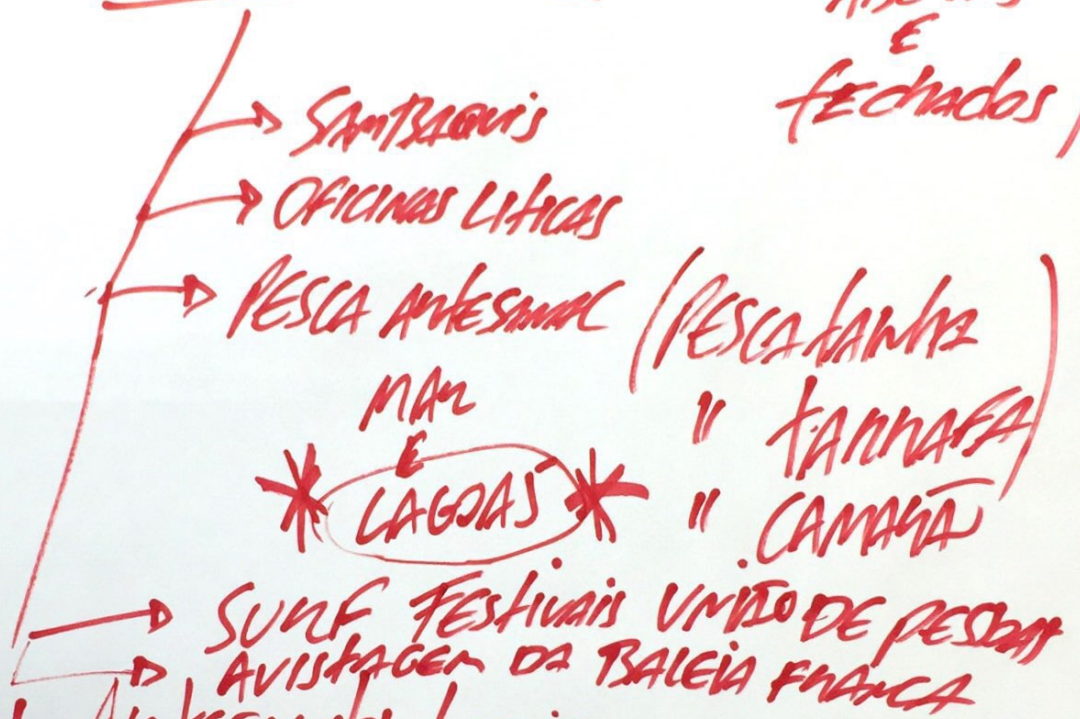 E
fechados
SAMBAQUIS
OFICINAS LITICAS
PESCA ARTESANAL (PESCA tAINHA
MAR " tARRAFA)
E
LAGOAS " CAMARÃO
SURF FEStivais UNIÃO DE PESSOAS
AVIStAGEM DA BALEIA FRANCA